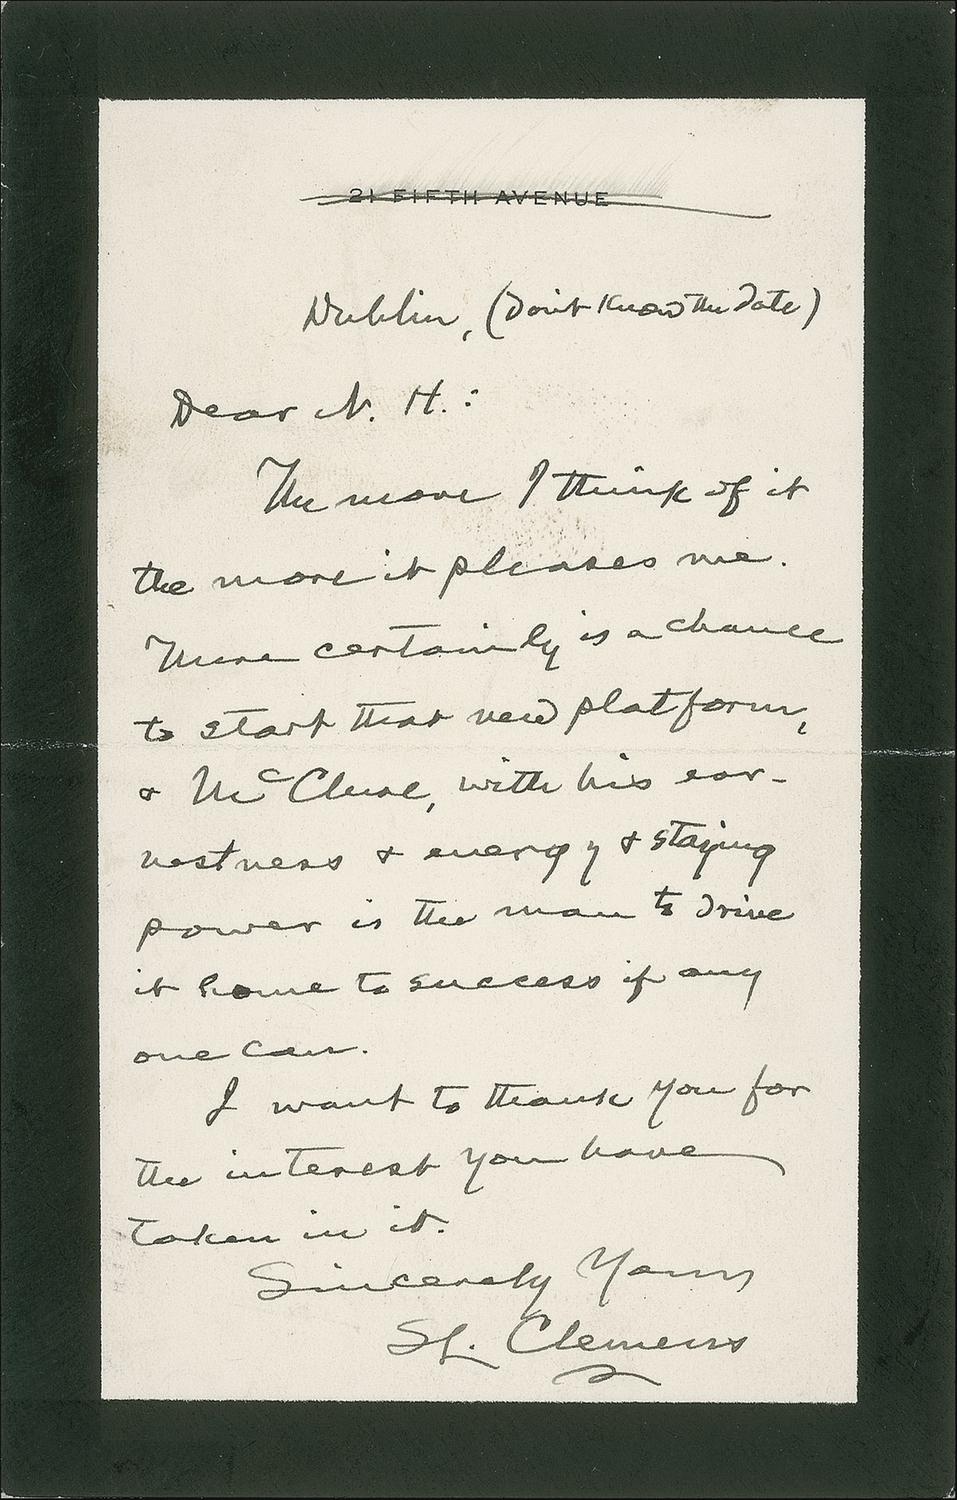 21 FIFTH AVENUE
Dublin, (Don't know the date)
Dear N. H.:
The more I think of it
the more it pleases me.
There certainly is a chance
to start that new platform,
& McClure, with his ear-
nestness & energy & staying
power is the man to drive
it home to success if any
one can.
I want to thank you for
the interest you have
taken in it.
Sincerely Yours
SL. Clemens